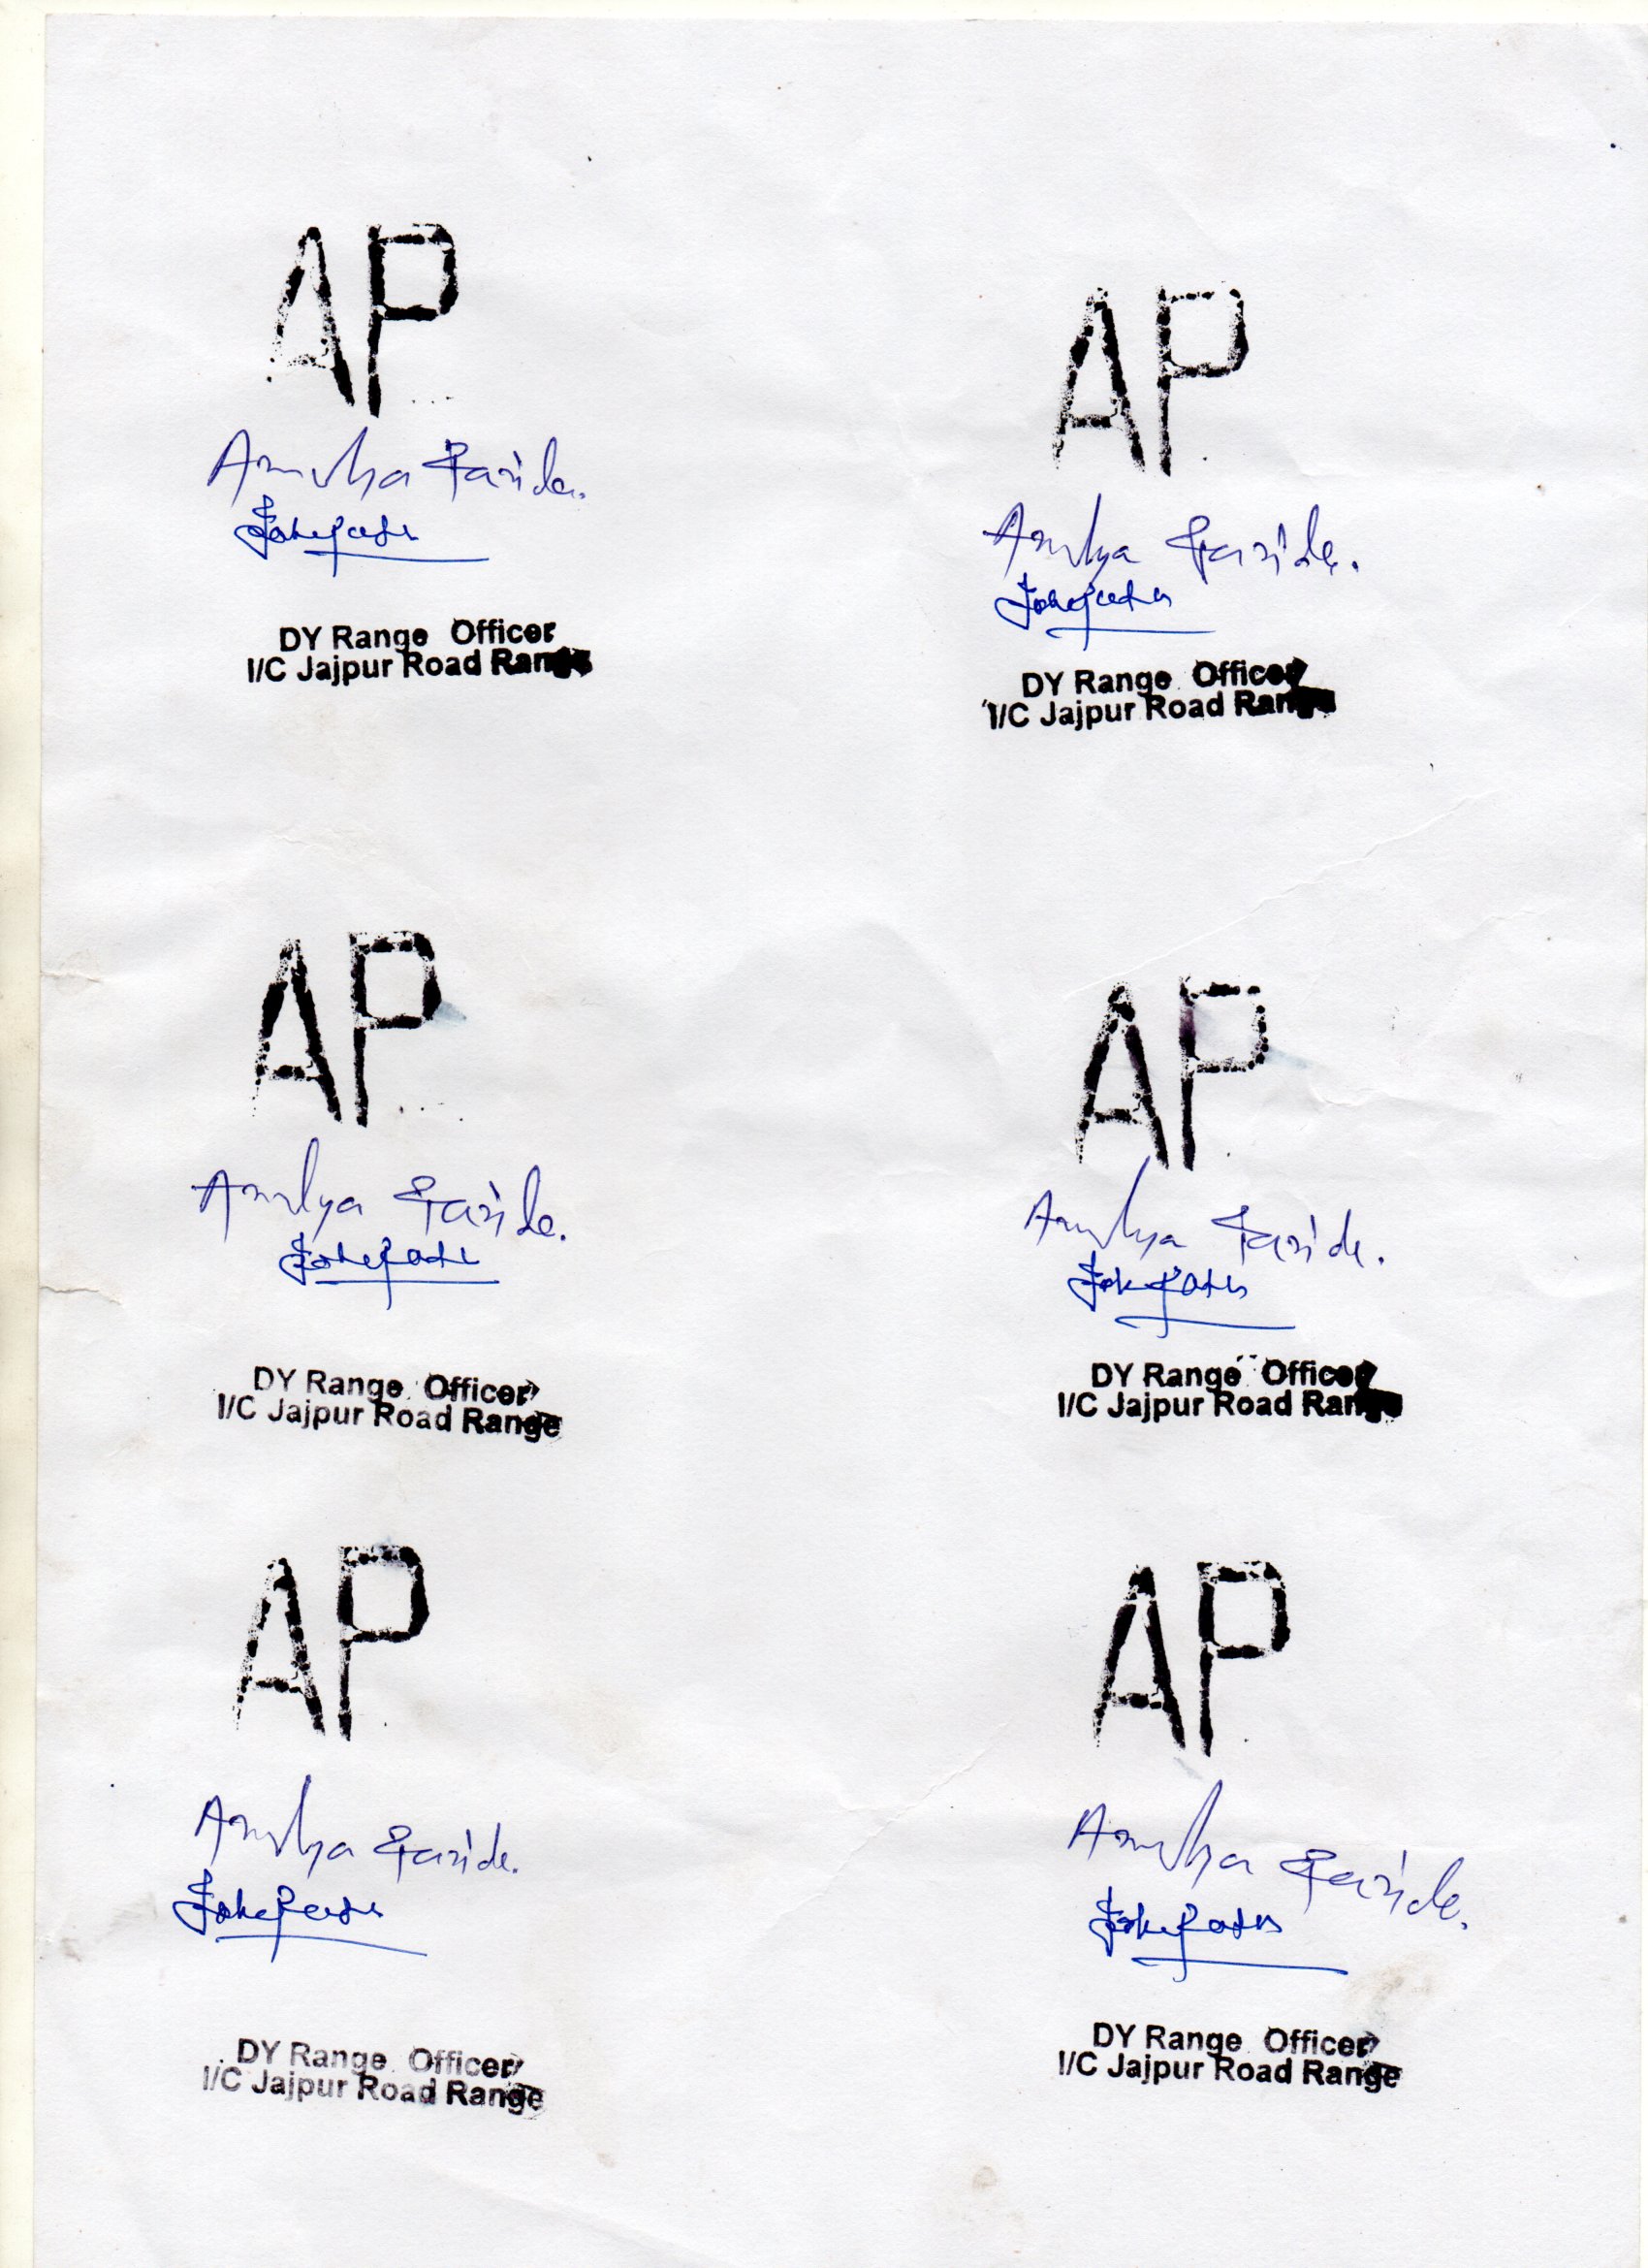 AP
Amulya Parida.
DY Range Officer
I/C Jajpur Road Range
AP
Amulya Parida.
DY Range Officer
I/C Jajpur Road Range
AP
Amulya Parida.
DY Range Officer
I/C Jajpur Road Range
AP
Amulya Parida.
DY Range Officer
I/C Jajpur Road Range
AP
Amulya Parida.
DY Range Officer
I/C Jajpur Road Range
AP
Amulya Parida.
DY Range Officer
I/C Jajpur Road Range